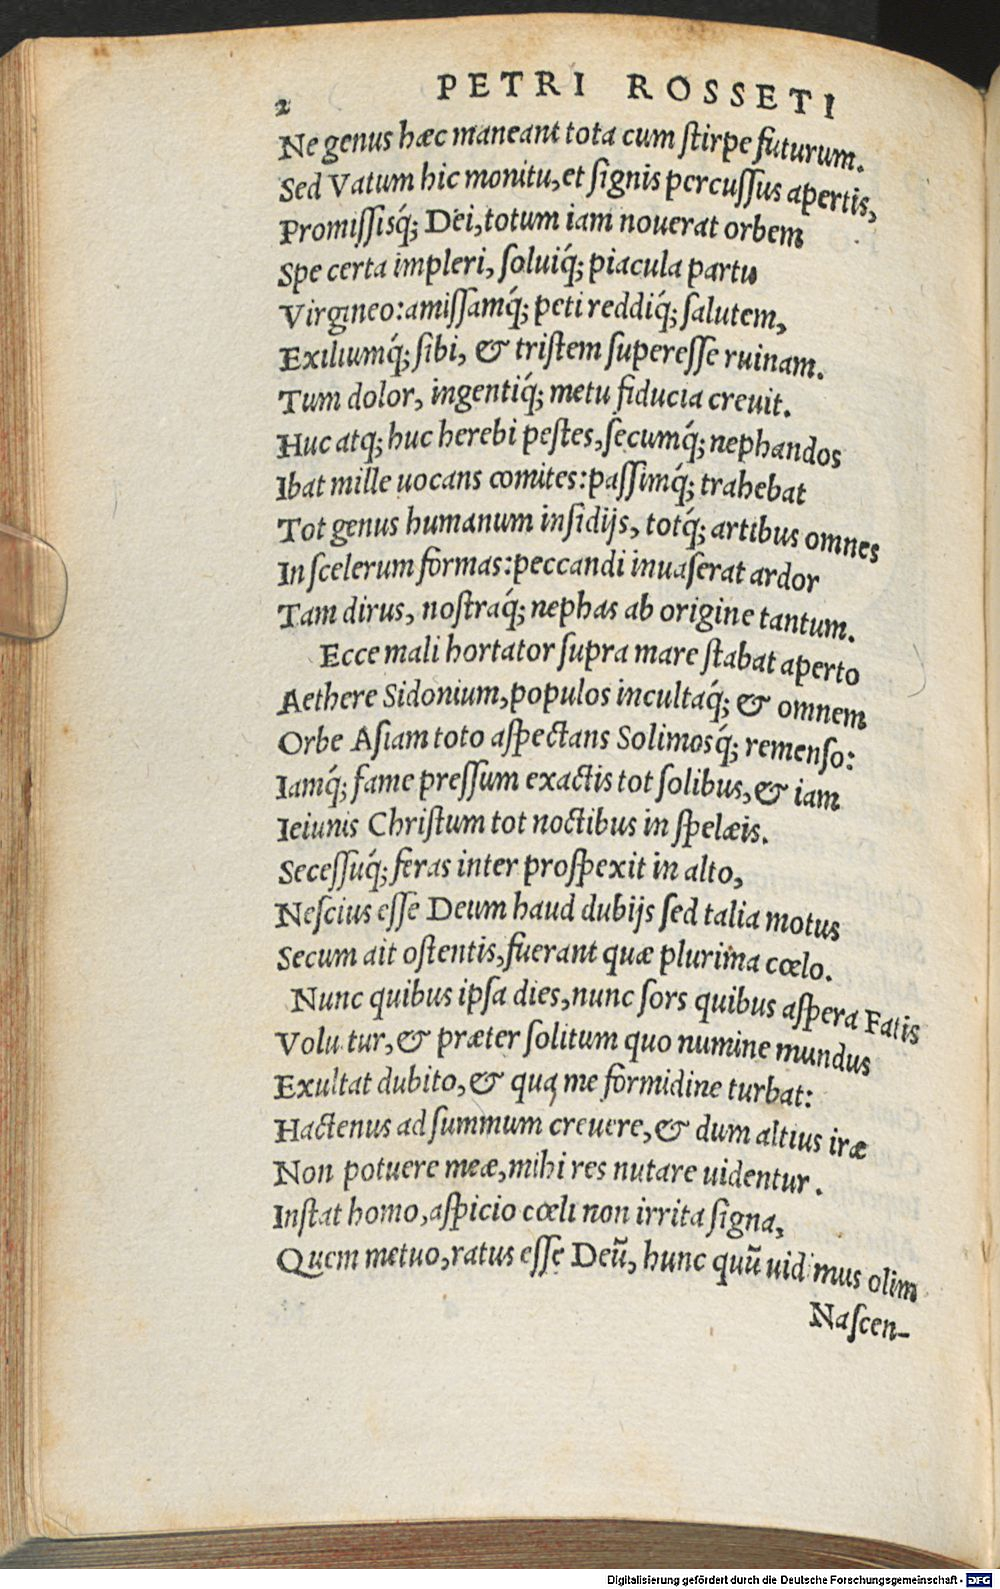 PETRI ROSSETI
2
Ne genus hæc maneant tota cum ſtirpe futurum.
Sed Vatum hic monitu, et ſignis percuſſus apertis,
Promiſſisq́; Dei, totum iam nouerat orbem
Spe certa impleri, ſoluiq́; piacula partu
Virgineo: amiſſamq́; peti reddiq́; ſalutem,
Exiliumq́; ſibi, & triſtem ſupereſſe ruinam.
Tum dolor, ingentiq́; metu fiducia creuit.
Huc atq; huc herebi peſtes, ſecumq́; nephandos
Ibat mille uocans comites: paſſimq́; trahebat
Tot genus humanum inſidijs, totq́; artibus omnes
In ſcelerum formas: peccandi inuaſerat ardor
Tam dirus, noſtraq́; nephas ab origine tantum.
Ecce mali hortator ſupra mare ſtabat aperto
Aethere Sidonium, populos incultaq́; & omnem
Orbe Aſiam toto aſpectans Solimosq́; remenſo:
Iamq́; fame preſſum exactis tot ſolibus, & iam
Ieiunis Chriſtum tot noctibus in ſpelæis.
Seceſſuq́; feras inter proſpexit in alto,
Neſcius eſſe Deum haud dubijs ſed talia motus
Secum ait oſtentis, fuerant quæ plurima cœlo.
Nunc quibus ipſa dies, nunc ſors quibus aſpera Fatis
Voluitur, & præter ſolitum quo numine mundus
Exultat dubito, & quæ me formidine turbat:
Hactenus ad ſummum creuere, & dum altius iræ
Non potuere meæ, mihi res nutare uidentur.
Inſtat homo, aſpicio cœli non irrita ſigna,
Quem metuo, ratus eſſe Deū, hunc quū uidimus olim
Naſcen-
Digitalisierung gefördert durch die Deutsche Forschungsgemeinschaft - DFG